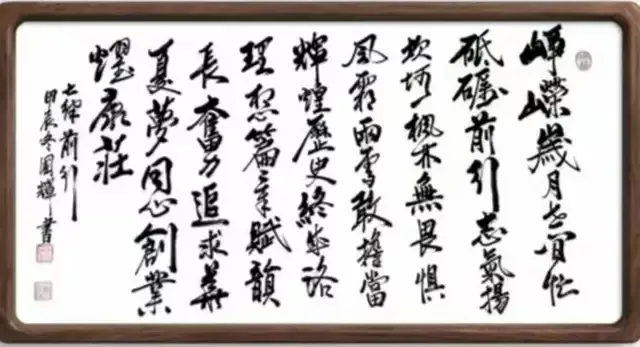 崢嶸歲月忙
砥礪前行志氣揚
坎坷無畏懼
風霜雨雪敢擔當
輝煌歷史終成路
理想篇章賦韻
長奮力追求華
夏夢同心創業
燿康莊
七律前行
甲辰冬國輝書